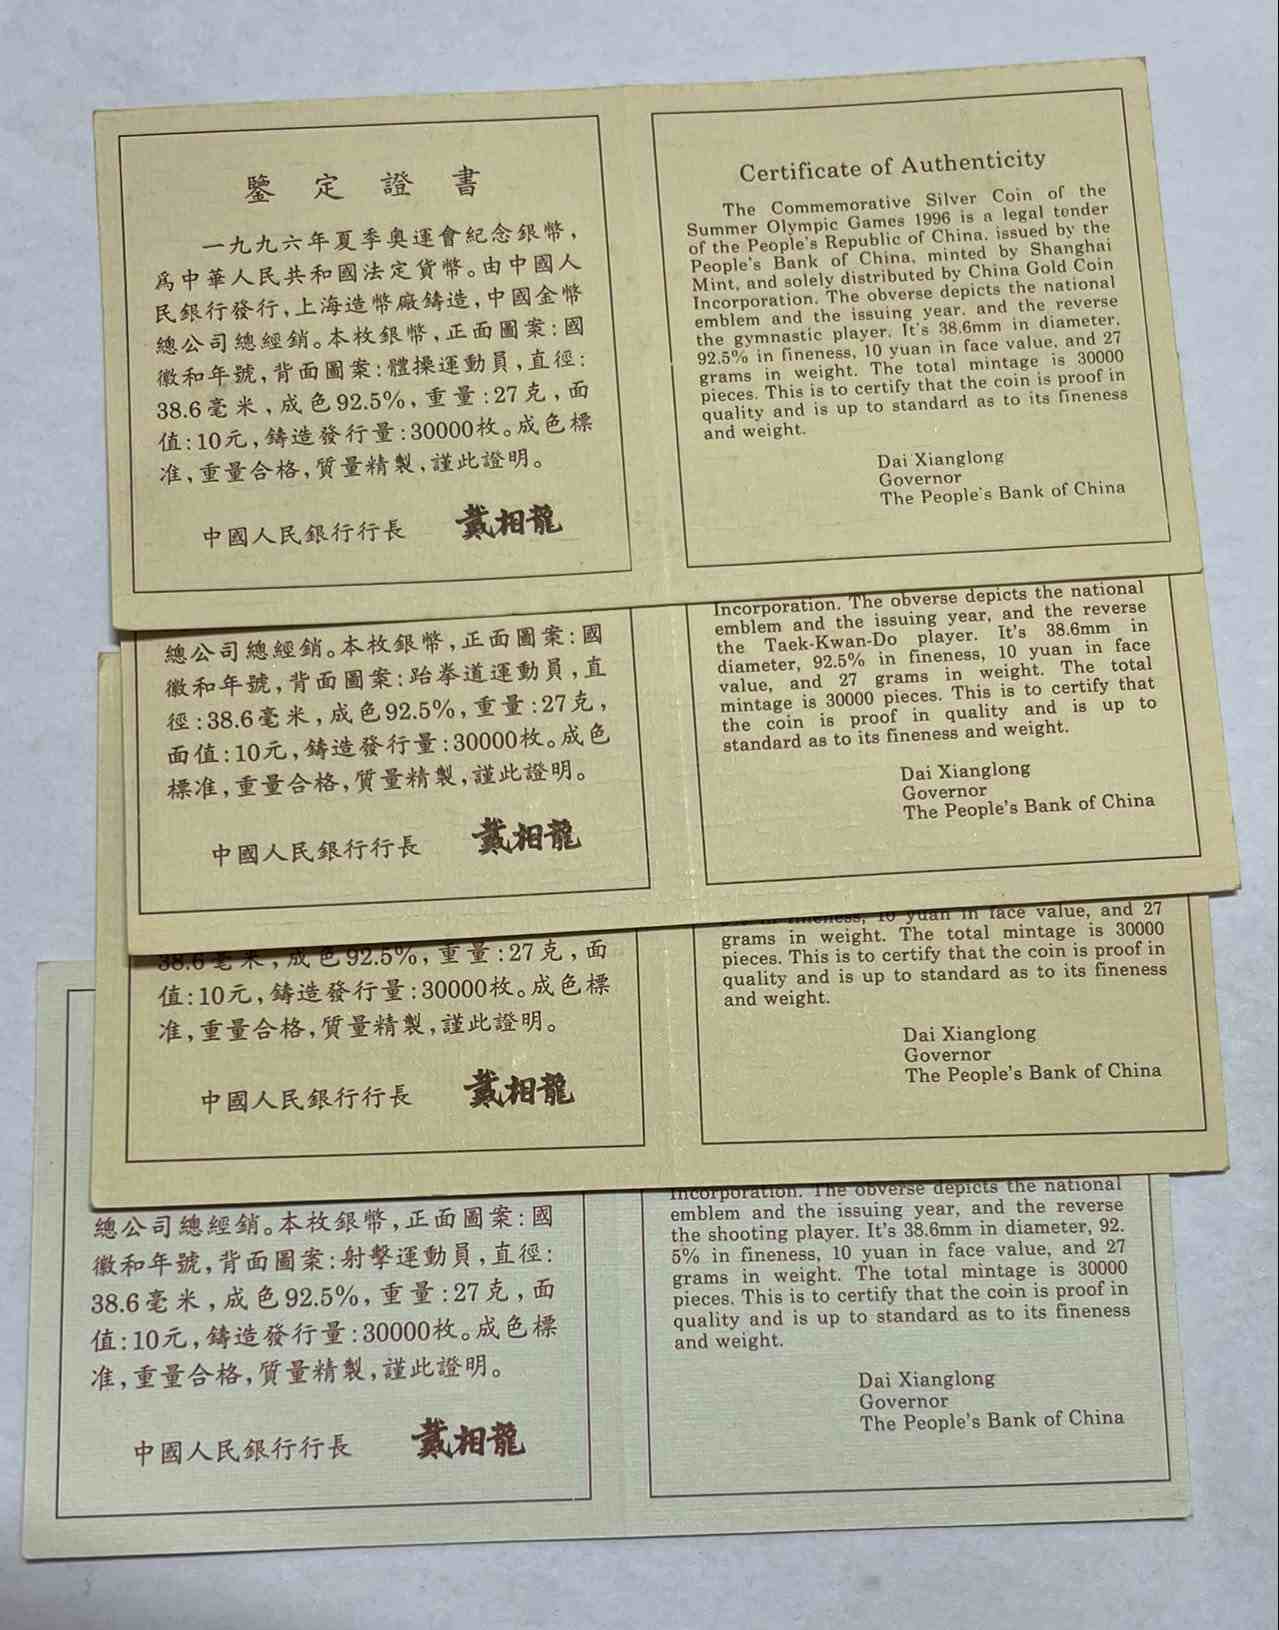 鑒定證書
一九九六年夏季奧運會紀念銀幣,
爲中華人民共和國法定貨幣。由中國人
民銀行發行,上海造幣廠鑄造,中國金幣
總公司總經銷。本枚銀幣,正面圖案:國
徽和年號,背面圖案:體操運動員,直徑:
38.6毫米,成色92.5%,重量:27克,面
值:10元,鑄造發行量:30000枚。成色標
准,重量合格,質量精製,謹此證明。
中國人民銀行行長 戴相龍
Certificate of Authenticity
The Commemorative Silver Coin of the
Summer Olympic Games 1996 is a legal tender
of the People's Republic of China, issued by the
People's Bank of China, minted by Shanghai
Mint, and solely distributed by China Gold Coin
Incorporation. The obverse depicts the national
emblem and the issuing year, and the reverse
the gymnastic player. It's 38.6mm in diameter,
92.5% in fineness, 10 yuan in face value, and 27
grams in weight. The total mintage is 30000
pieces. This is to certify that the coin is proof in
quality and is up to standard as to its fineness
and weight.
Dai Xianglong
Governor
The People's Bank of China
總公司總經銷。本枚銀幣,正面圖案:國
徽和年號,背面圖案:跆拳道運動員,直
徑:38.6毫米,成色92.5%,重量:27克,
面值:10元,鑄造發行量:30000枚。成色
標准,重量合格,質量精製,謹此證明。
中國人民銀行行長 戴相龍
Incorporation. The obverse depicts the national
emblem and the issuing year, and the reverse
the Taek-Kwan-Do player. It's 38.6mm in
diameter, 92.5% in fineness, 10 yuan in face
value, and 27 grams in weight. The total
mintage is 30000 pieces. This is to certify that
the coin is proof in quality and is up to
standard as to its fineness and weight.
Dai Xianglong
Governor
The People's Bank of China
38.6毫米,成色92.5%,重量:27克,面
值:10元,鑄造發行量:30000枚。成色標
准,重量合格,質量精製,謹此證明。
中國人民銀行行長 戴相龍
in fineness, 10 yuan in face value, and 27
grams in weight. The total mintage is 30000
pieces. This is to certify that the coin is proof in
quality and is up to standard as to its fineness
and weight.
Dai Xianglong
Governor
The People's Bank of China
總公司總經銷。本枚銀幣,正面圖案:國
徽和年號,背面圖案:射擊運動員,直徑:
38.6毫米,成色92.5%,重量:27克,面
值:10元,鑄造發行量:30000枚。成色標
准,重量合格,質量精製,謹此證明。
中國人民銀行行長 戴相龍
Incorporation. The obverse depicts the national
emblem and the issuing year, and the reverse
the shooting player. It's 38.6mm in diameter, 92.
5% in fineness, 10 yuan in face value, and 27
grams in weight. The total mintage is 30000
pieces. This is to certify that the coin is proof in
quality and is up to standard as to its fineness
and weight.
Dai Xianglong
Governor
The People's Bank of China